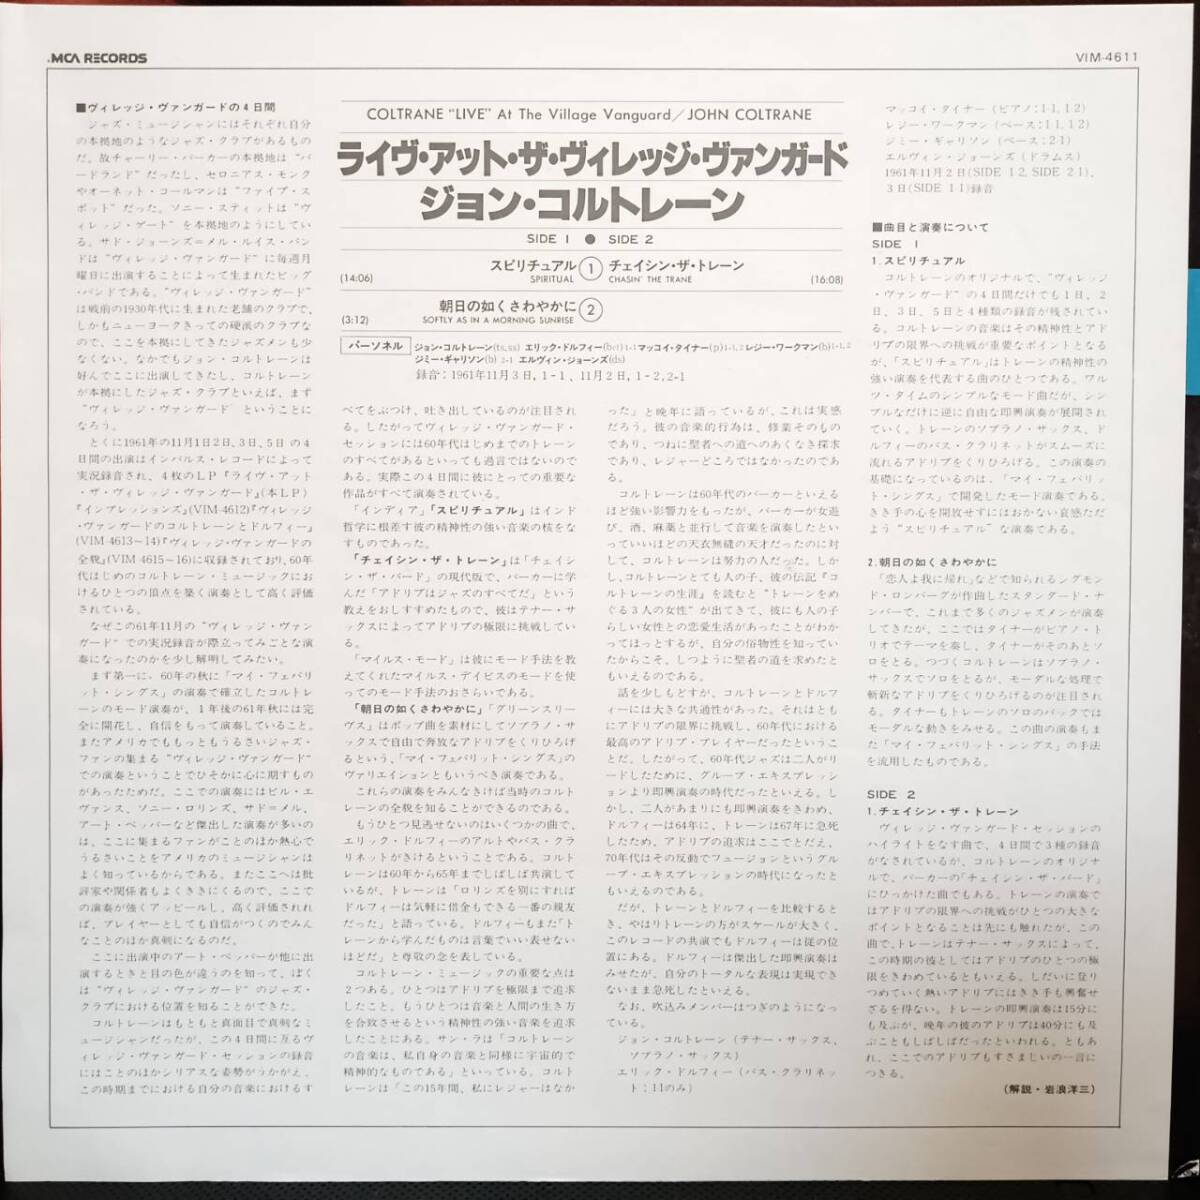 MCA RECORDS
VIM-4611
■ヴィレッジ・ヴァンガードの4日間
ジャズ・ミュージシャンにはそれぞれ自分
の本拠地のようなジャズ・クラブがあるもの
だ。故チャーリー・パーカーの本拠地は“バ
ードランド”だったし、セロニアス・モンク
やオーネット・コールマンは“ファイブ・ス
ポット”だった。ソニー・スティットは“ヴ
ィレッジ・ゲート”を本拠地のようにしてい
る。サド・ジョーンズ＝メル・ルイス・バン
ドは“ヴィレッジ・ヴァンガード”に毎週月
曜日に出演することによって生まれたビッグ
・バンドである。“ヴィレッジ・ヴァンガード”
は戦前の1930年代に生まれた老舗のクラブで、
しかもニューヨークきっての硬派のクラブな
ので、ここを本拠にしてきたジャズメンも少
なくない。なかでもジョン・コルトレーンは
好んでここに出演してきたし、コルトレーン
が本拠にしたジャズ・クラブといえば、まず
“ヴィレッジ・ヴァンガード”ということに
なろう。
とくに1961年の11月1日2日、3日、5日の4
日間の出演はインパルス・レコードによって
実況録音され、4枚のLP『ライヴ・アット
・ザ・ヴィレッジ・ヴァンガード』(本LP)
『インプレッションズ』(VIM-4612)『ヴィレッジ
・ヴァンガードのコルトレーンとドルフィー』
(VIM-4613〜14)『ヴィレッジ・ヴァンガードの
全貌』(VIM-4615〜16)に収録されており、60年
代はじめのコルトレーン・ミュージックにお
けるひとつの頂点を築く演奏として高く評価
されている。
なぜこの61年11月の“ヴィレッジ・ヴァン
ガード”での実況録音が際立ってみごとな演
奏になったのかを少し解明してみたい。
まず第一に、60年の秋に「マイ・フェバリ
ット・シングス」の演奏で確立したコルトレ
ーンのモード演奏が、1年後の61年秋には完
全に開花し、自信をもって演奏していること。
またアメリカでももっともうるさいジャズ・
ファンの集まる“ヴィレッジ・ヴァンガード”
での演奏ということでひそかに心に期すもの
があったためだ。ここでの演奏にはビル・エ
ヴァンス、ソニー・ロリンズ、サド＝メル、
アート・ペッパーなど傑出した演奏が多いの
は、ここに集まるファンがことのほか熱心で
うるさいことをアメリカのミュージシャンは
よく知っているからである。またここへは批
評家や関係者もよくききにくるので、ここで
の演奏が強くアッピールし、高く評価されれ
ば、プレイヤーとしても自信がつくのでみん
なことのほか真剣になるのだ。
ここに出演中のアート・ペッパーが他に出
演するときと目の色が違うのを知って、ぼく
は“ヴィレッジ・ヴァンガード”のジャズ・
クラブにおける位置を知ることができた。
コルトレーンはもともと真面目で真剣なミ
ュージシャンだったが、この4日間に亙るヴ
ィレッジ・ヴァンガード・セッションの録音
にはことのほかシリアスな姿勢がうかがえ、
この時期までにおける自分の音楽におけるす
COLTRANE “LIVE” At The Village Vanguard／JOHN COLTRANE
ライヴ・アット・ザ・ヴィレッジ・ヴァンガード
ジョン・コルトレーン
SIDE 1 ● SIDE 2
スピリチュアル ① チェイシン・ザ・トレーン
(14:06) SPIRITUAL CHASIN' THE TRANE (16:08)
朝日の如くさわやかに ②
(3:12) SOFTLY AS IN A MORNING SUNRISE
パーソネル ジョン・コルトレーン(ts,ss) エリック・ドルフィー(bcl)1-1 マッコイ・タイナー(p)1-1,2 レジー・ワークマン(b)1-1,2
ジミー・ギャリソン(b) 2-1 エルヴィン・ジョーンズ(ds)
録音：1961年11月3日,1-1、11月2日,1-2,2-1
べてをぶつけ、吐き出しているのが注目され
る。したがってヴィレッジ・ヴァンガード・
セッションには60年代はじめまでのトレーン
のすべてがあるといっても過言ではないので
ある。実際この4日間に彼にとっての重要な
作品がすべて演奏されている。
「インディア」「スピリチュアル」はインド
哲学に根差す彼の精神性の強い音楽の核をな
すものであった。
「チェイシン・ザ・トレーン」は「チェイシ
ン・ザ・バード」の現代版で、パーカーに学
んだ「アドリブはジャズのすべてだ」という
教えをおしすすめたもので、彼はテナー・サ
ックスによってアドリブの極限に挑戦してい
る。
「マイルス・モード」は彼にモード手法を教
えてくれたマイルス・デイビスのモードを使
ってのモード手法のおさらいである。
「朝日の如くさわやかに」「グリーンスリー
ヴス」はポップ曲を素材にしてソプラノ・サ
ックスで自由で奔放なアドリブをくりひろげ
るという、「マイ・フェバリット・シングス」の
ヴァリエイションともいうべき演奏である。
これらの演奏をみんなきけば当時のコルト
レーンの全貌を知ることができるのである。
もうひとつ見逃せないのはいくつかの曲で、
エリック・ドルフィーのアルトやバス・クラ
リネットがきけるということである。コルト
レーンは60年から65年までしばしば共演して
いるが、トレーンは「ロリンズを別にすれば
ドルフィーは気軽に借金もできる一番の親友
だった」と語っている。ドルフィーもまた「ト
レーンから学んだものは言葉でいい表せない
ほどだ」と尊敬の念を表している。
コルトレーン・ミュージックの重要な点は
2つある。ひとつはアドリブを極限まで追求
したこと。もうひとつは音楽と人間の生き方
を合致させるという精神性の強い音楽を追求
したことにある。サン・ラは「コルトレーン
の音楽は、私自身の音楽と同様に宇宙的で
精神的なものである」といっている。コルト
レーンは「この15年間、私にレジャーはなか
った」と晩年に語っているが、これは実感
だろう。彼の音楽的行為は、修業そのもの
であり、つねに聖者への道へのあくなき探求
であり、レジャーどころではなかったのであ
る。
コルトレーンは60年代のパーカーといえる
ほど強い影響力をもったが、パーカーが女遊
び、酒、麻薬と並行して音楽を演奏したとい
っていいほどの天衣無縫の天才だったのに対
して、コルトレーンは努力の人だった。しか
し、コルトレーンとても人の子、彼の伝記『コ
ルトレーンの生涯』を読むと“トレーンをめ
ぐる3人の女性”が出てきて、彼にも人の子
らしい女性との恋愛生活があったことがわか
ってほっとするが、自分の俗物性を知ってい
たからこそ、しつように聖者の道を求めたと
もいえるのである。
話を少しもどすが、コルトレーンとドルフ
ィーには大きな共通性があった。それはとも
にアドリブの限界に挑戦し、60年代における
最高のアドリブ・プレイヤーだったというこ
とだ。したがって、60年代ジャズは二人がリ
ードしたために、グループ・エキスプレッシ
ョンより即興演奏の時代だったといえる。し
かし、二人があまりにも即興演奏をきわめ、
ドルフィーは64年に、トレーンは67年に急死
したため、アドリブの追求はここでとだえ、
70年代はその反動でフュージョンというグル
ープ・エキスプレッションの時代になったと
もいえるのである。
だが、トレーンとドルフィーを比較すると
き、やはりトレーンの方がスケールが大きく、
このレコードの共演でもドルフィーは従の位
置にある。ドルフィーは傑出した即興演奏は
みせたが、自分のトータルな表現は実現でき
ないまま急死したといえる。
なお、吹込みメンバーはつぎのようになっ
ている。
ジョン・コルトレーン（テナー・サックス、
ソプラノ・サックス）
エリック・ドルフィー（バス・クラリネッ
ト；1 1のみ）
マッコイ・タイナー（ピアノ：1 1, 1 2）
レジー・ワークマン（ベース：1 1, 1 2）
ジミー・ギャリソン（ベース：2 1）
エルヴィン・ジョーンズ（ドラムス）
1961年11月2日(SIDE 1 2, SIDE 2 1)、
3日(SIDE 1 1)録音
■曲目と演奏について
SIDE 1
1.スピリチュアル
コルトレーンのオリジナルで、“ヴィレッジ
・ヴァンガード”の4日間だけでも1日、2
日、3日、5日と4種類の録音が残されてい
る。コルトレーンの音楽はその精神性とアド
リブの限界への挑戦が重要なポイントとなる
が、「スピリチュアル」はトレーンの精神性の
強い演奏を代表する曲のひとつである。ワル
ツ・タイムのシンプルなモード曲だが、シン
プルなだけに逆に自由な即興演奏が展開され
ていく。トレーンのソプラノ・サックス、ド
ルフィーのバス・クラリネットがスムーズに
流れるアドリブをくりひろげる。この演奏の
基礎になっているのは、「マイ・フェバリッ
ト・シングス」で開発したモード演奏である。
きき手の心を開放せずにはおかない哀感ただ
よう“スピリチュアル”な演奏である。
2.朝日の如くさわやかに
「恋人よ我に帰れ」などで知られるシグモン
ド・ロンバーグが作曲したスタンダード・ナ
ンバーで、これまで多くのジャズメンが演奏
してきたが、ここではタイナーがピアノ・ト
リオでテーマを奏し、タイナーがそのあとソ
ロをとる。つづくコルトレーンはソプラノ・
サックスでソロをとるが、モーダルな処理で
斬新なアドリブをくりひろげるのが注目され
る。タイナーもトレーンのソロのバックでは
モーダルな動きをみせる。この曲の演奏もま
た「マイ・フェバリット・シングス」の手法
を流用したものである。
SIDE 2
1.チェイシン・ザ・トレーン
ヴィレッジ・ヴァンガード・セッションの
ハイライトをなす曲で、4日間で3種の録音
がなされているが、コルトレーンのオリジナ
ルで、パーカーの「チェイシン・ザ・バード」
にひっかけた曲でもある。トレーンの演奏で
はアドリブの限界への挑戦がひとつの大きな
ポイントとなることは先にも触れたが、この
曲で、トレーンはテナー・サックスによって、
この時期の彼としてはアドリブのひとつの極
限をきわめているともいえる。しだいに登り
つめていく熱いアドリブにはきき手も興奮せ
ざるを得ない。トレーンの演奏は15分に
も及ぶが、晩年の彼のアドリブは40分にも及
ぶこともしばしばだったといわれる。ともあ
れ、ここでのアドリブもすさまじいの一言に
つきる。
（解説・岩浪洋三）